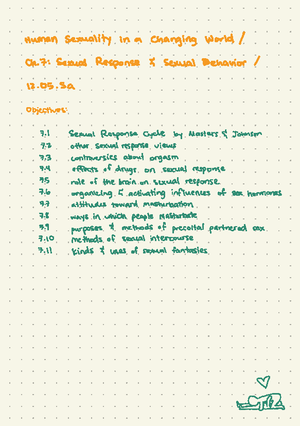 Human Sexuality in a Changing World /
Ch.7: Sexual Response & Sexual Behavior /
12.05.Sa
Objectives:
7.1 Sexual Response Cycle by Masters & Johnson
7.2 other sexual response views
7.3 controversies about orgasm
7.4 effects of drugs on sexual response
7.5 role of the brain on sexual response
7.6 organizing & activating influences of sex hormones
7.7 attitudes toward masturbation
7.8 ways in which people masturbate
7.9 purposes & methods of precoital partnered sex
7.10 methods of sexual intercourse
7.11 kinds & uses of sexual fantasies